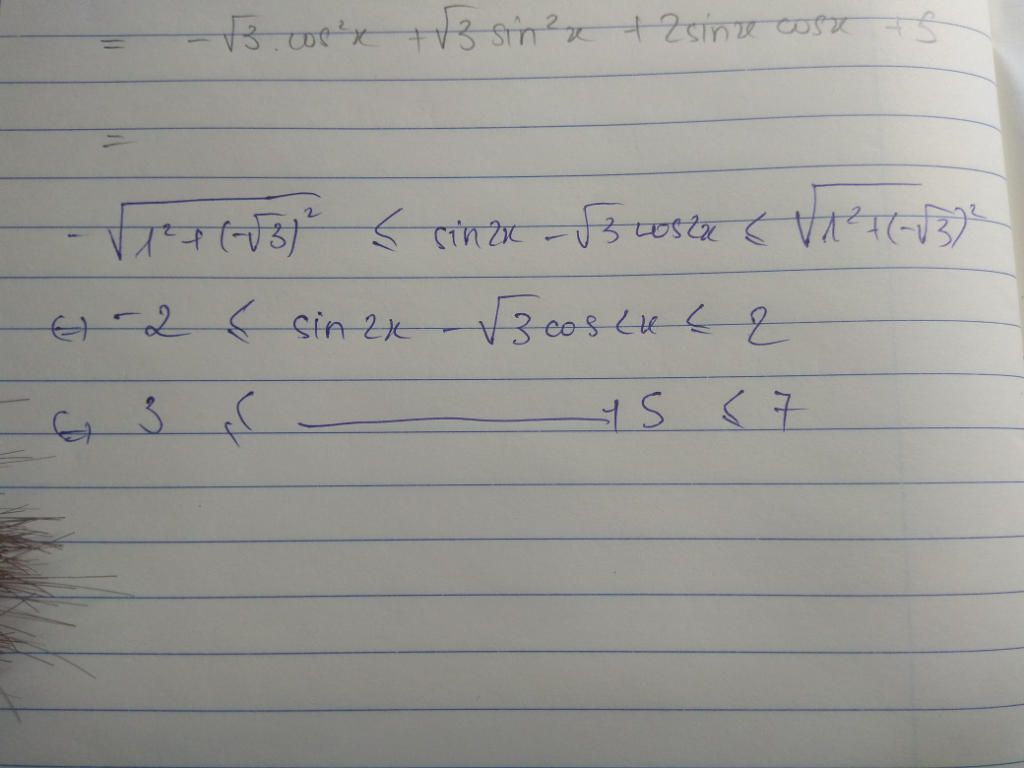 = -√3.cos²x +√3 sin²x + 2sinx cosx + 5
=
-√(1²+(-√3)²) ≤ sin2x -√3 cos2x ≤ √(1²+(-√3)²)
⇔ -2 ≤ sin2x - √3 cos2x ≤ 2
⇔ 3 ≤ ———— + 5 ≤ 7